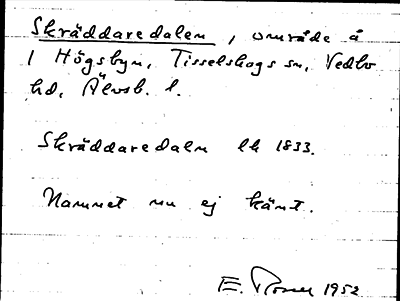 Skräddaredalen, område å
1 Högsbyn, Tisselskogs sn, Vedbo
hd, Älvsb. l.
Skräddaredalen lk 1833.
Namnet nu ej känt.
E. 1952